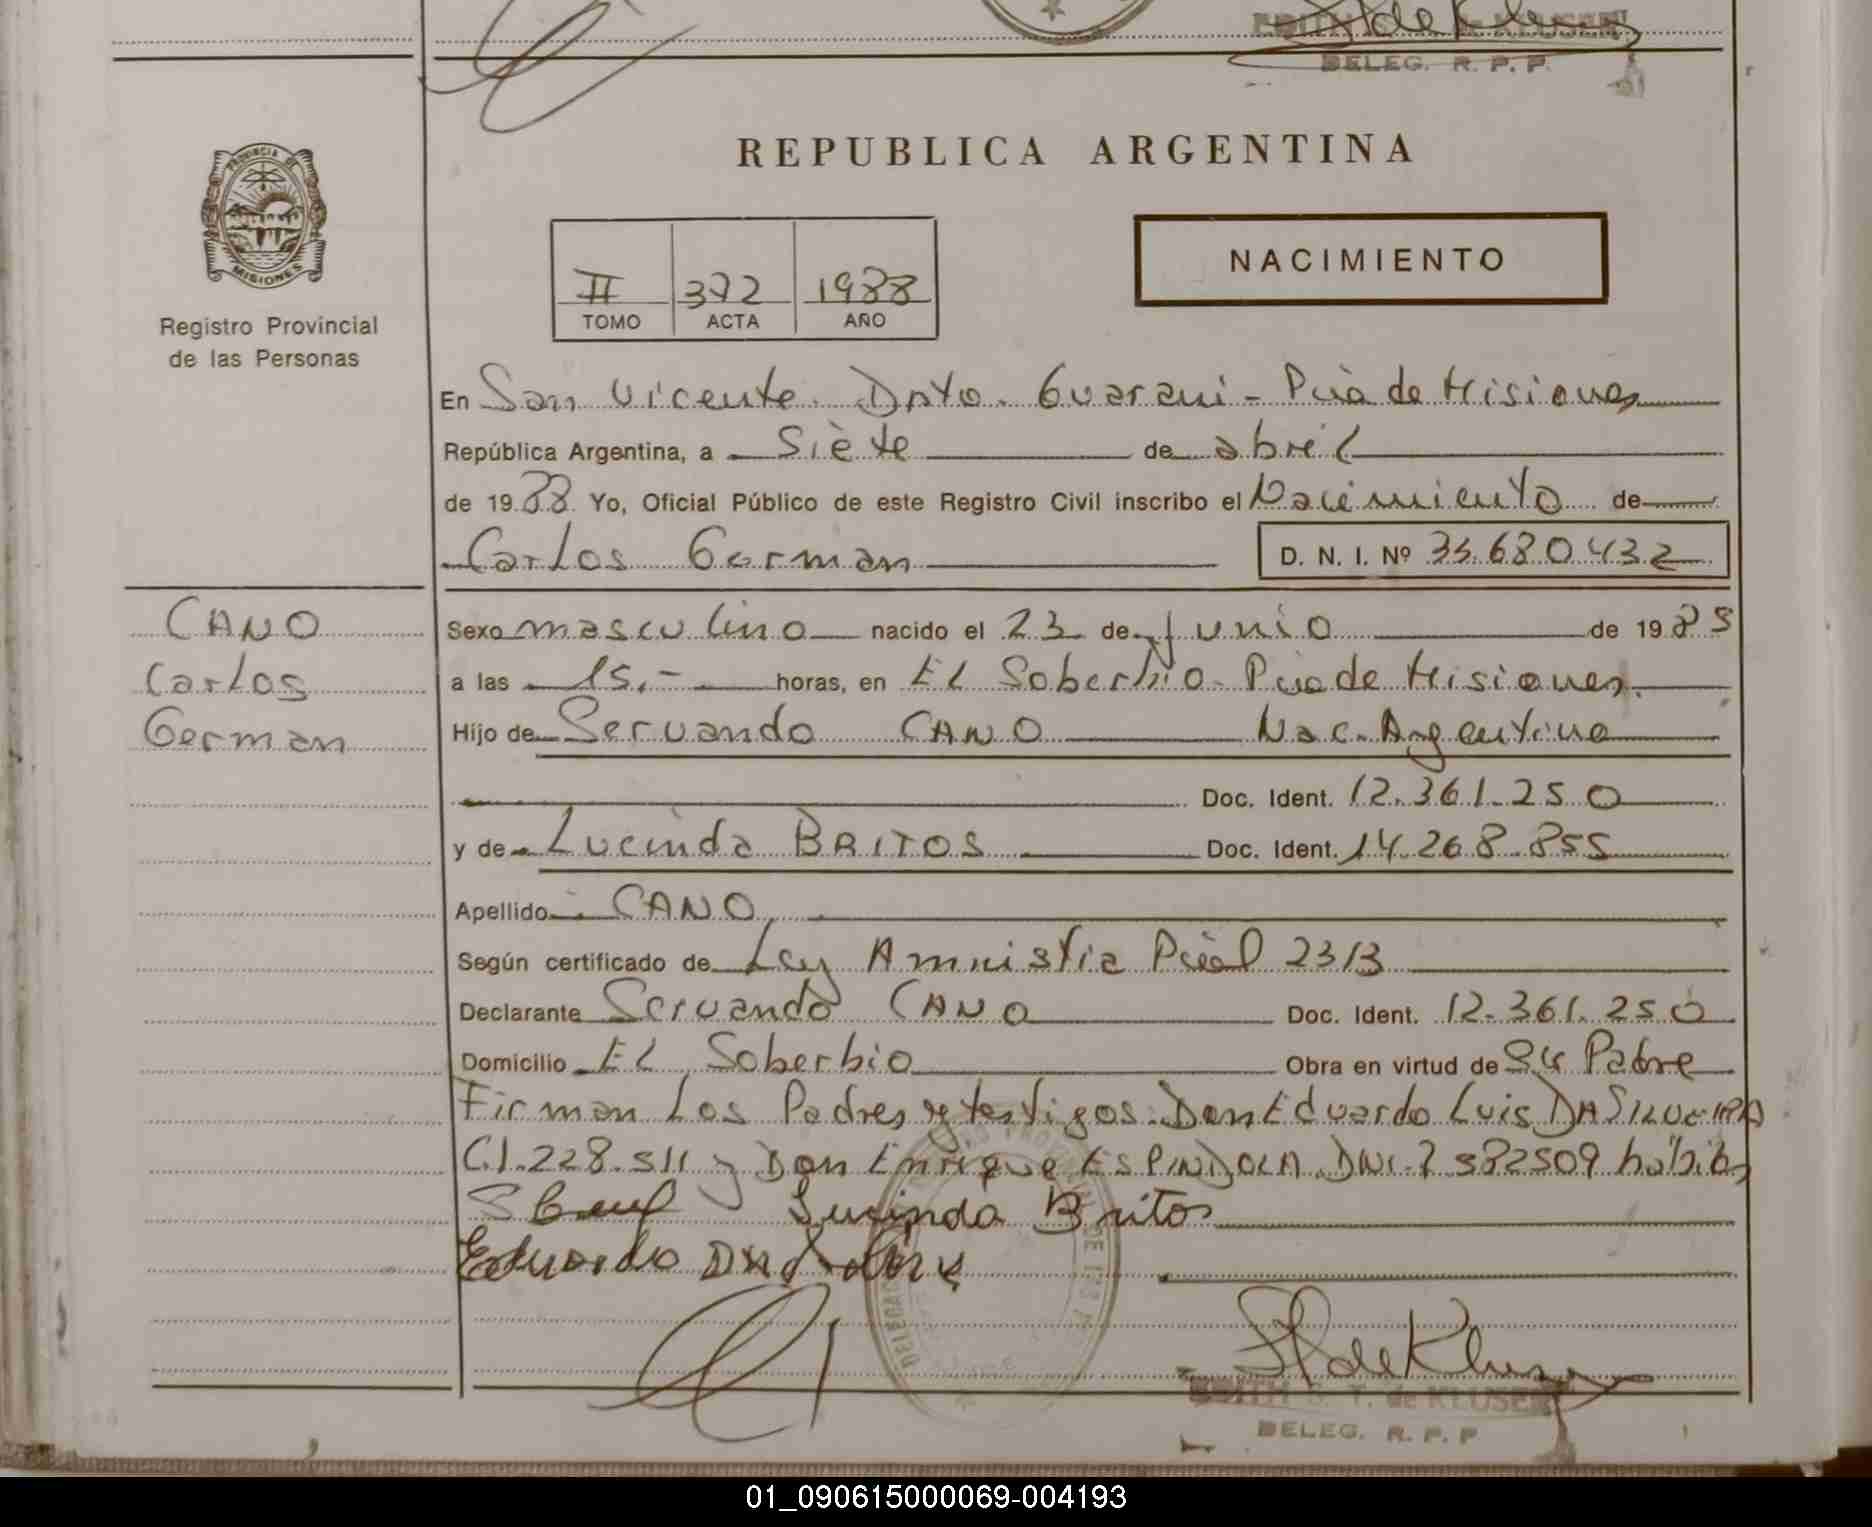 EDITH S. T. de KLUSER
DELEG. R. P. P.
PROVINCIA DE
MISIONES
Registro Provincial
de las Personas
REPUBLICA ARGENTINA
NACIMIENTO
II 372 1988
TOMO ACTA AÑO
En San Vicente Dpto. Guarani - Pcia de Misiones
República Argentina, a Siete de abril
de 1988 Yo, Oficial Público de este Registro Civil inscribo el Nacimiento de
Carlos German D. N. I. Nº 33.680.432
CANO
Carlos
German
Sexo masculino nacido el 23 de Junio de 1985
a las 15.- horas, en El Soberbio - Pcia de Misiones.
Hijo de Servando CANO Nac. Argentina
Doc. Ident. 12.361.250
y de Lucinda BRITOS Doc. Ident. 14.268.855
Apellido CANO
Según certificado de Ley Amnistia Pcial 2313
Declarante Servando CANO Doc. Ident. 12.361.250
Domicilio El Soberbio Obra en virtud de Su Padre
Firman Los Padres y testigos: Don Eduardo Luis DASILVEIRA
C.I. 228.511 y Don Enrique ESPINDOLA DNI. 7582509 hábiles
Lucinda Britos
Eduardo
EDITH S. T. de KLUSER
DELEG. R. P. P.
01_090615000069-004193